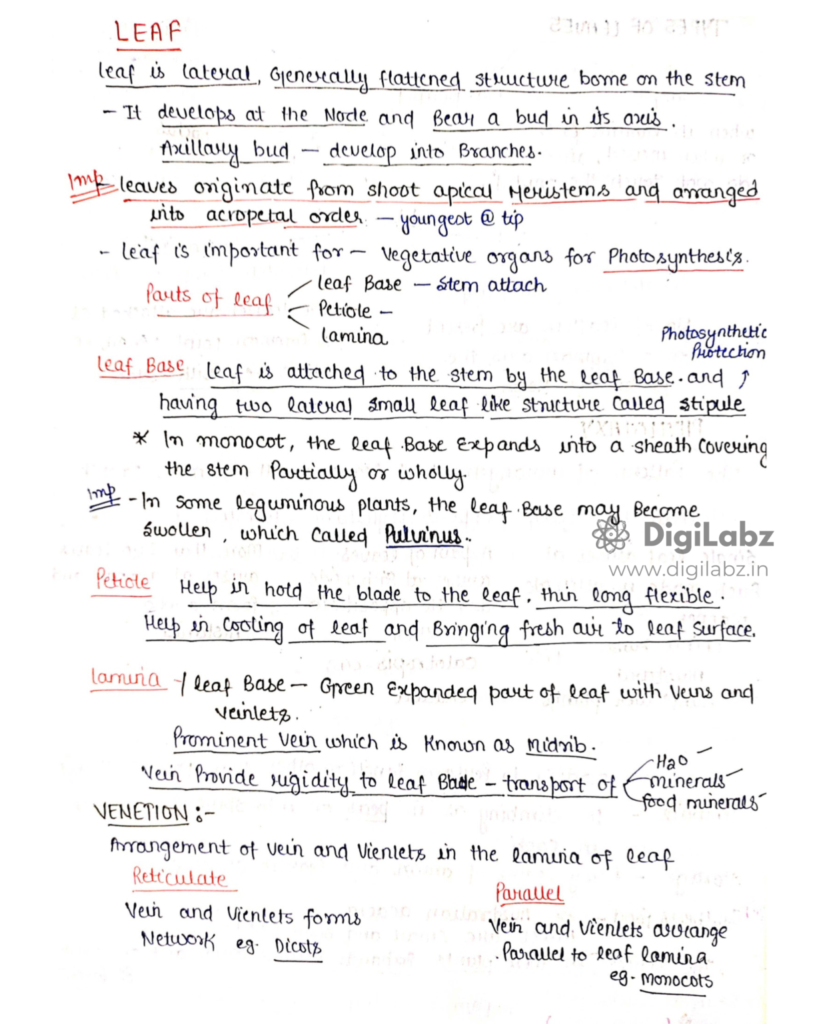 LEAF
leaf is lateral, Generally flattened structure borne on the stem
- It develops at the Node and Bear a bud in its axis.
Axillary bud - develop into Branches.
Imp leaves originate from shoot apical Meristems and arranged
into acropetal order - youngest @ tip
- leaf is important for - vegetative organs for Photosynthesis.
Parts of leaf
leaf Base - stem attach
Petiole -
lamina
Photosynthetic
Protection
leaf Base leaf is attached to the stem by the leaf Base. and ↑
having two lateral small leaf like structure called stipule
* In monocot, the leaf Base Expands into a sheath covering
the stem Partially or wholly.
Imp - In some leguminous plants, the leaf Base may Become
swollen, which called Pulvinus.
DigiLabz
www.digilabz.in
Petiole Help in hold the blade to the leaf, thin long flexible.
Help in cooling of leaf and Bringing fresh air to leaf surface.
lamina / leaf Base - Green Expanded part of leaf with veins and
veinlets.
Prominent vein which is Known as Midrib.
Vein Provide rigidity to leaf Blade - transport of
H2O -
minerals -
food minerals -
VENETION :-
Arrangement of vein and Vienlets in the lamina of leaf
Reticulate
Vein and Vienlets forms
Network eg. Dicots
Parallel
Vein and Vienlets arrange
Parallel to leaf lamina
eg. monocots